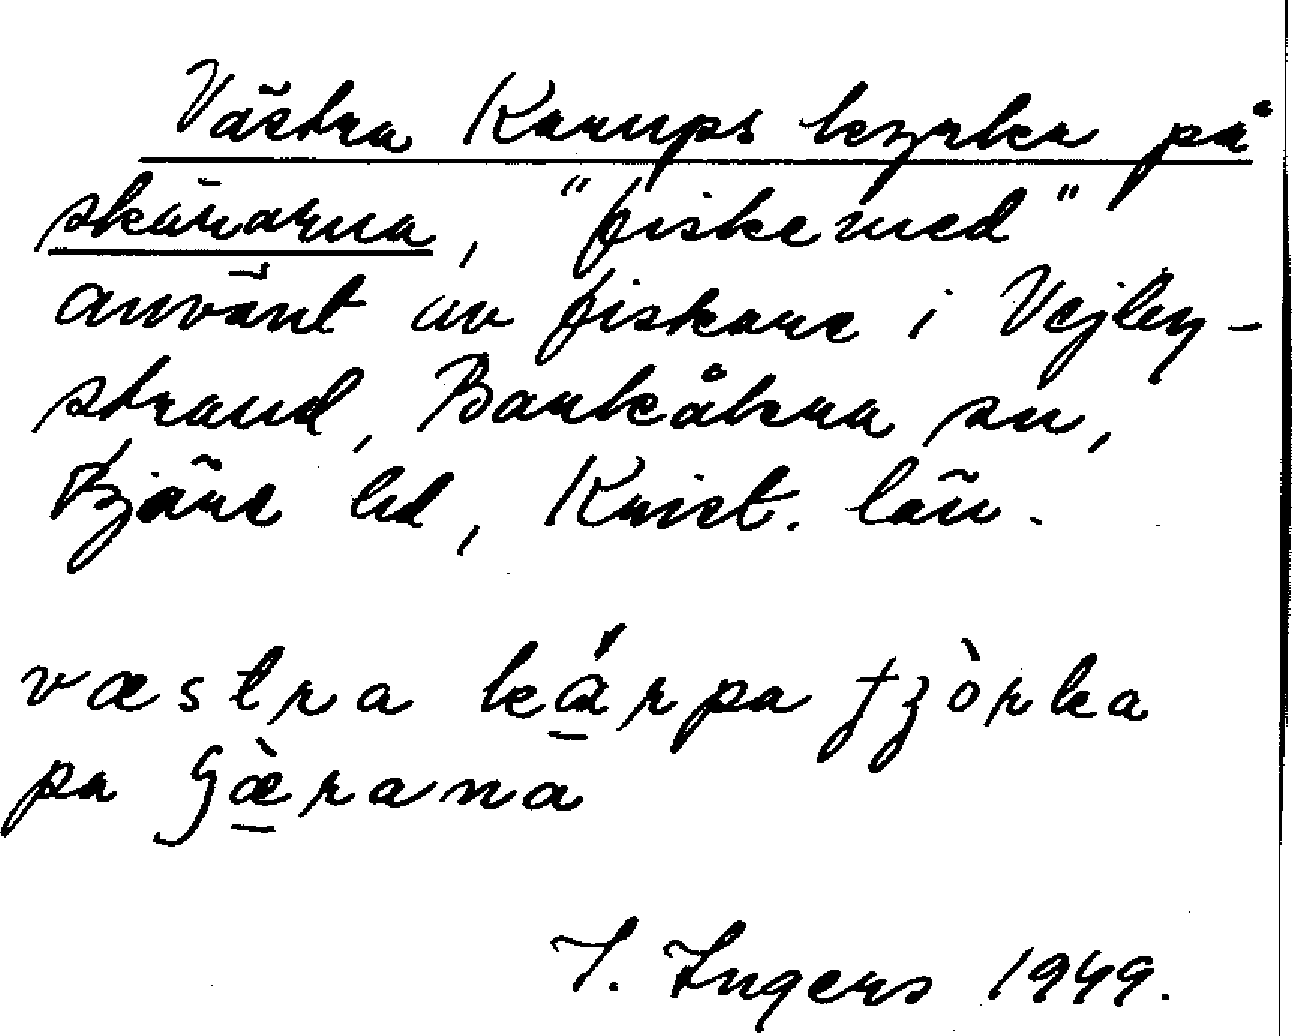 Västra Karups kyrka på
skärarna, "fiskemed"
använt av fiskare i Vejby-
strand, Barkåkra sn,
Bjäre hd, Krist. län.
væstra kárpa tʒòrka
pa ʃæ̀rana
I. Ingers 1949.